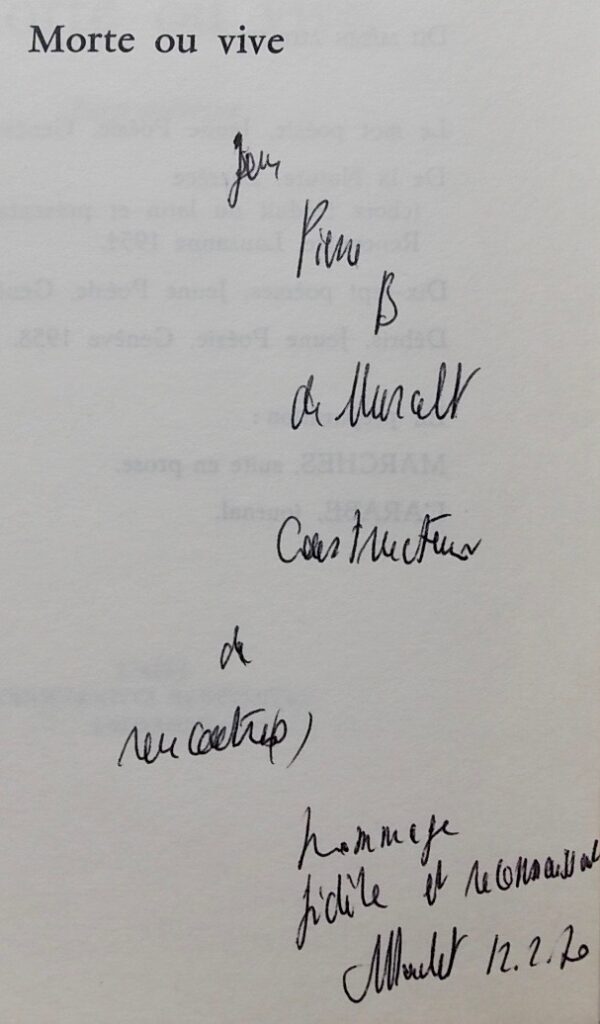 Morte ou vive
Jean
Pierre
B
de Muralt
Constructeur
de
rencontres,
hommage
fidèle et reconnaissant
CMouchet 12.2.70